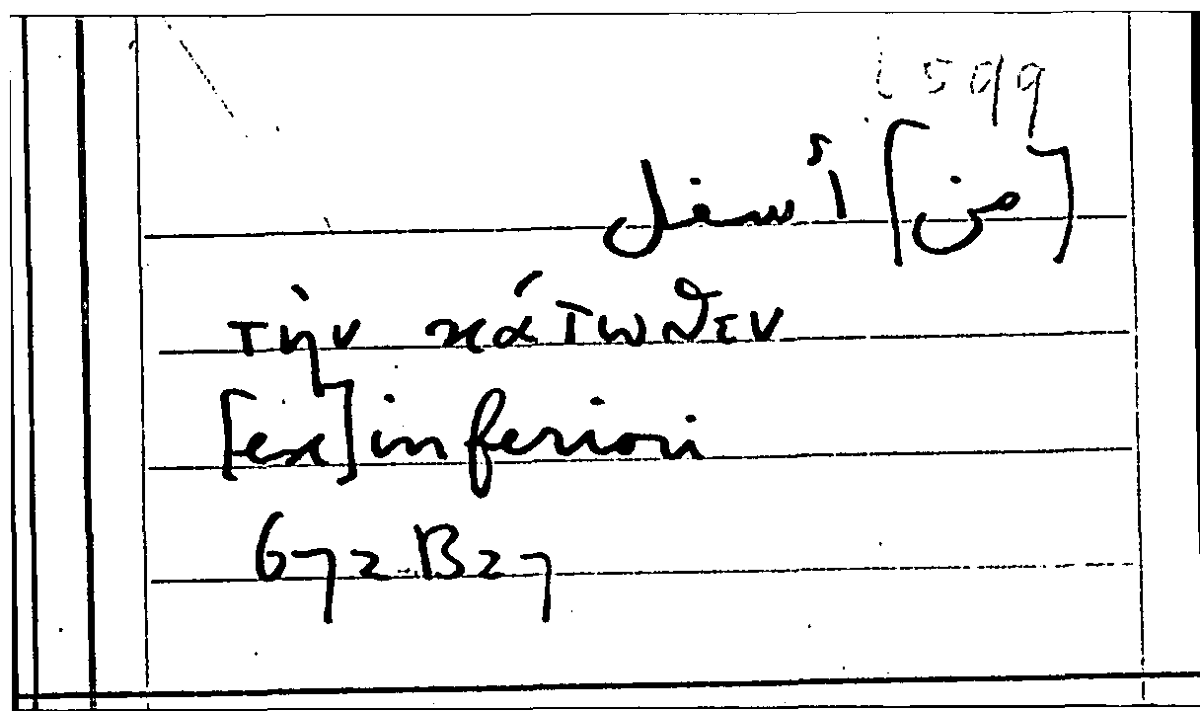 [من] أسفل
τὴν κάτωθεν
[ex] inferiori
672 B27